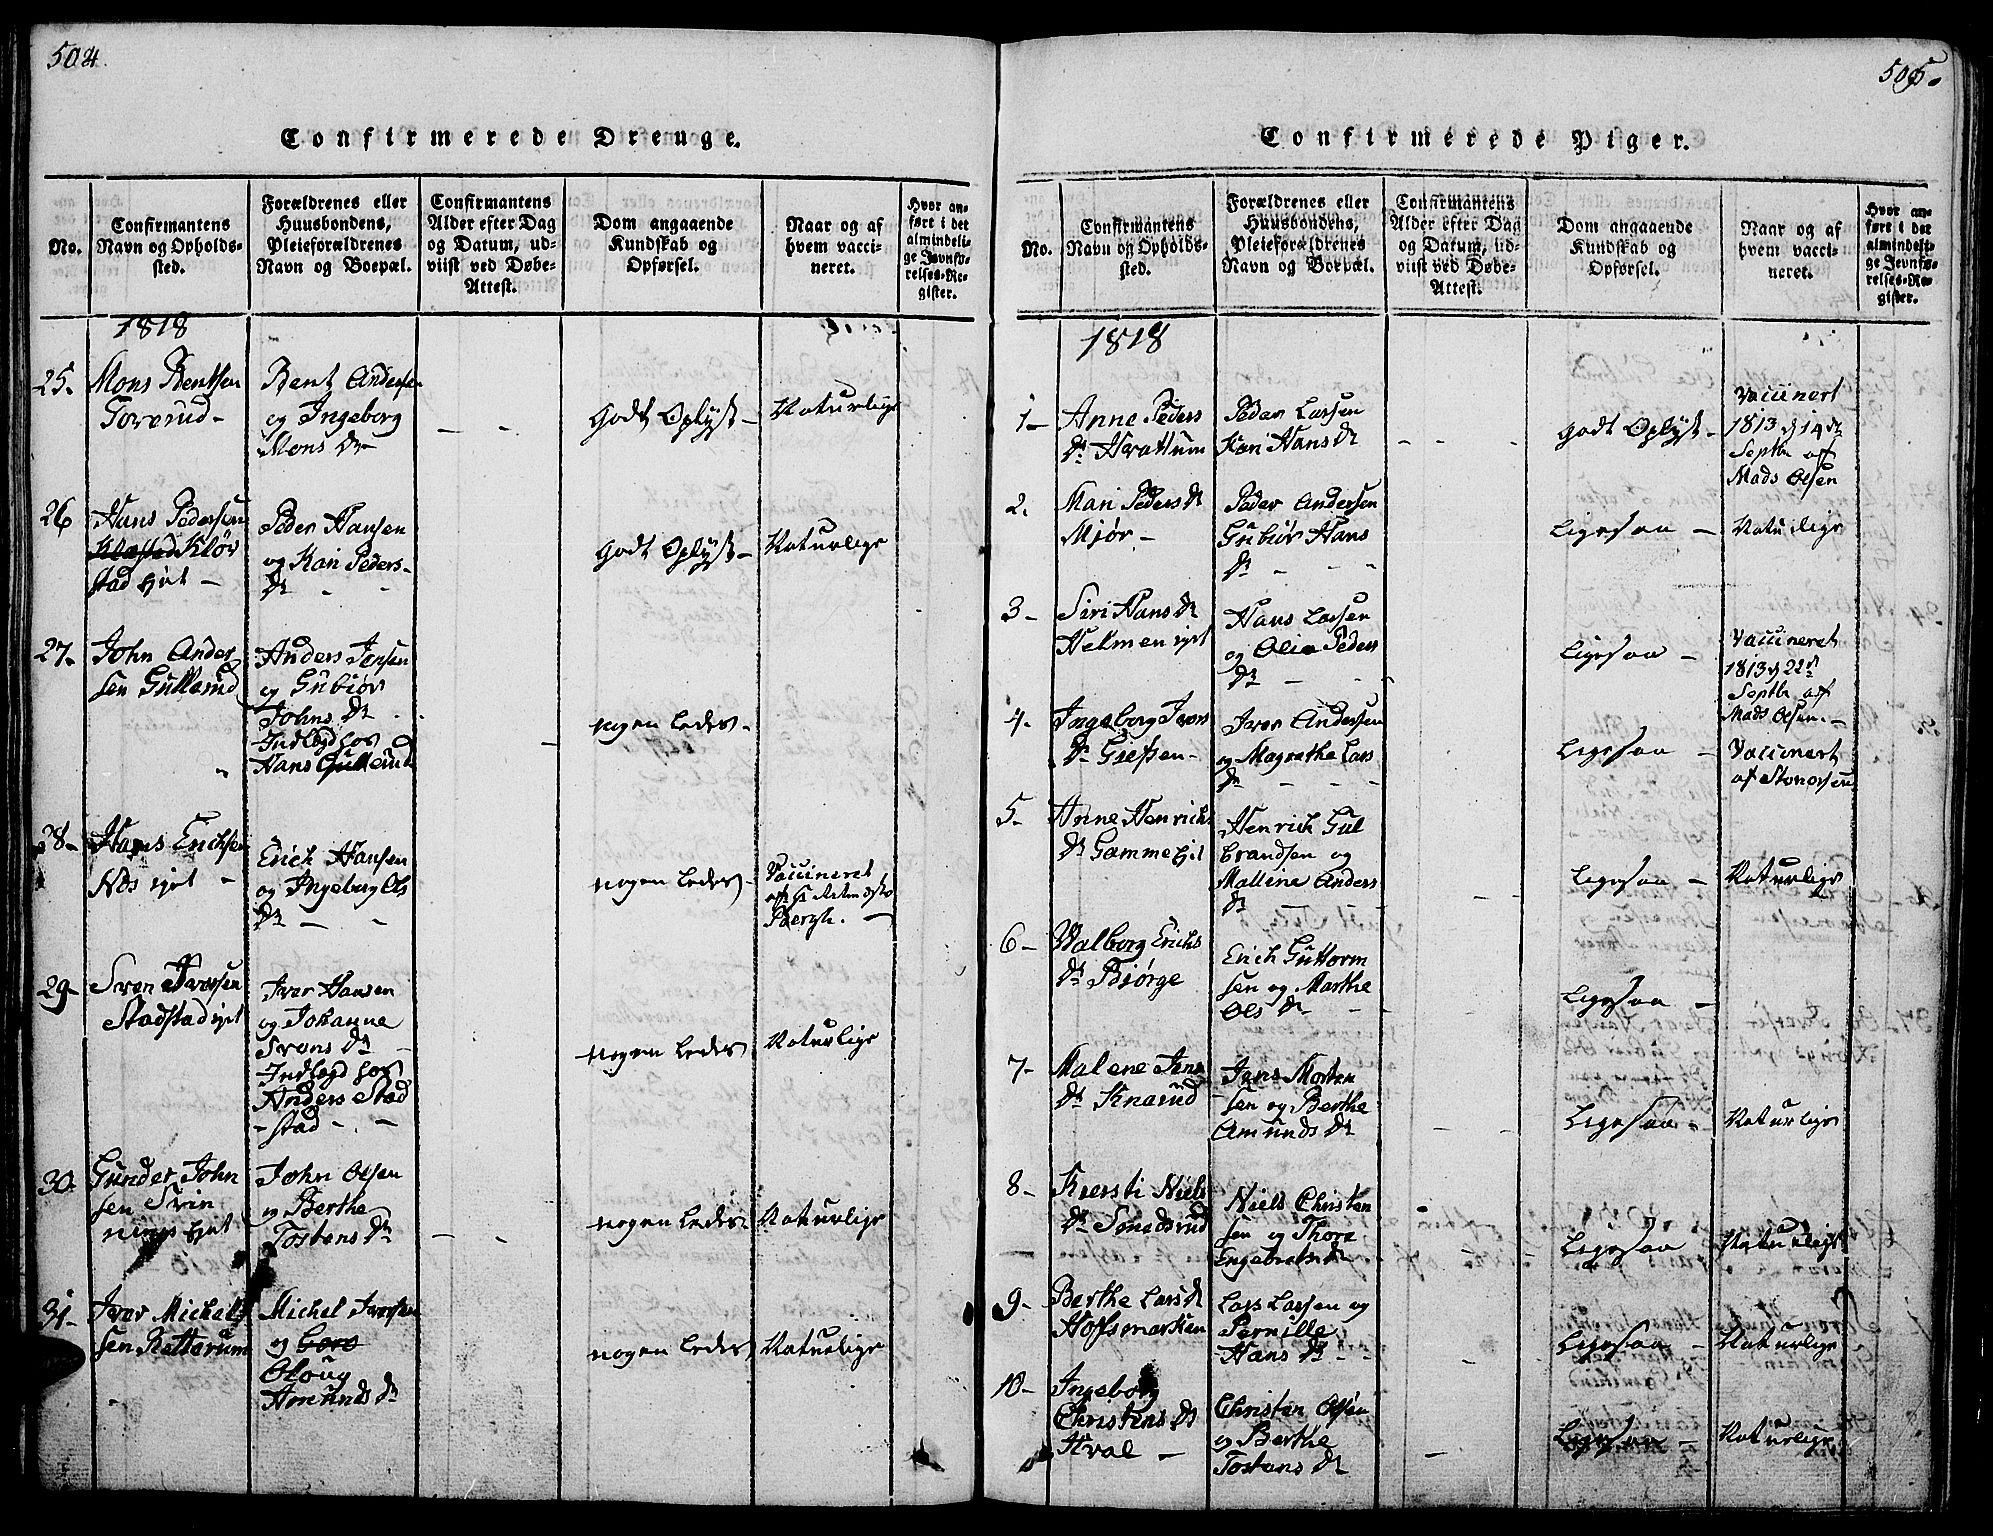 504.
Confirmerede Drenge.
No.
Confirmantens
Navn og Opholds-
sted.
Forældrenes eller
Huusbondens,
Pleieforældrenes
Navn og Boepæl.
Confirmantens
Alder efter Dag
og Datum, ud-
viist ved Døbe-
Attest.
Dom angaaende
Kundskab og
Opførsel.
Naar og af
hvem vacci-
neret.
Hvor an-
ført i det
almindeli-
ge Jevnfø-
relses-Re-
gister.
1818
25.
Mons Bentsen
Toverud-
Bent Andersen
og Ingeborg
Mons Dr
Godt Oplyst-
Naturlige
26
Hans Pedersen
Kløv
stad Ejet -
Peder Hansen
og Kari Peders-
Dr
Godt Oplyst-
Naturlige
27.
John Ander
sen Gullerud
Anders Jensen
og Gubiør
Johns Dr
Indlagd hos
Hans Gullerud
nogenledes-
28-
Hans Erichsen
Næs ejet -
Erich Hansen
og Ingeborg Ols
Dr
nogenledes-
Vaccineret
Bergh. -
29-
Sven Iversen
Stadstad ejet
Iver Hansen
og Johanne
Svens Dr
Indlagd hos
Anders Stad
-stad -
nogenledes
Naturlige
30.
Gunder John
sen Svin
nings Ejet
John Olsen
og Berthe
Tostens Dr
nogenledes-
Naturlige
31-
Iver Michels
sen Rætterum
Michel Iversen
og Goro
Oloug
Amunds Dr
nogenledes
Naturlige
505.
Confirmerede Piger.
No.
Confirmantens
Navn og Opholds-
sted.
Forældrenes eller
Huusbondens,
Pleieforældrenes
Navn og Boepæl.
Confirmantens
Alder efter Dag
og Datum, ud-
viist ved Døbe-
Attest.
Dom angaaende
Kundskab og
Opførsel.
Naar og af
hvem vacci-
neret.
Hvor an-
ført i det
almindeli-
ge Jevnfø-
relses-Re-
gister.
1818
1-
Anne Peders
Dr Hvattum
Peder Larsen
Kari Hans Dr
Godt Oplyst-
Vaccinert
1813 d 14 de
Septbr af
Mads Olsen
2.
Mari Peders Dr
Mjør -
Peder Andersen
Gubiør Hans
Dr
Ligesaa -
Naturlige
3-
Siri Hans Dr
Helmen ejet
Hans Larsen
og Olia Peders
Dr
Ligesaa -
Vaccineret
1813 d 22de
Septbr af
Mads Olsen. -
4-
Ingeborg Ivers
Dr Grefsen-
Iver Andersen
og Magrethe Lars
Dr
Ligesaa -
Vaccinert
af Stenersen
5-
Anne Henrichs
Dr Gamme Ejet
Henrich Gul
brandsen og
Mallene Anders
Dr
Ligesaa -
Naturlige
6-
Valborg Erichs
Dr Bjørge
Erich Guttorm
sen og Marthe
Ols Dr
Ligesaa -
7-
Malene Jens
Dr Knarud
Jens Morten
sen og Berthe
Amunds Dr
Ligesaa -
Naturlige
8-
Kiersti Niels
Dr Smedsrud
Niels Christen
sen og Thore
Engebrets Dr
Ligesaa
Naturlige
9-
Berthe Lars Dr
Hoffsmarken
Lars Larsen og
Pernille
Hans Dr
Ligesaa -
Naturlige
10-
Ingeborg
Christens Dr
Hval -
Christen Olsen
og Berthe
Tostens Dr
Ligesaa -
Naturlige